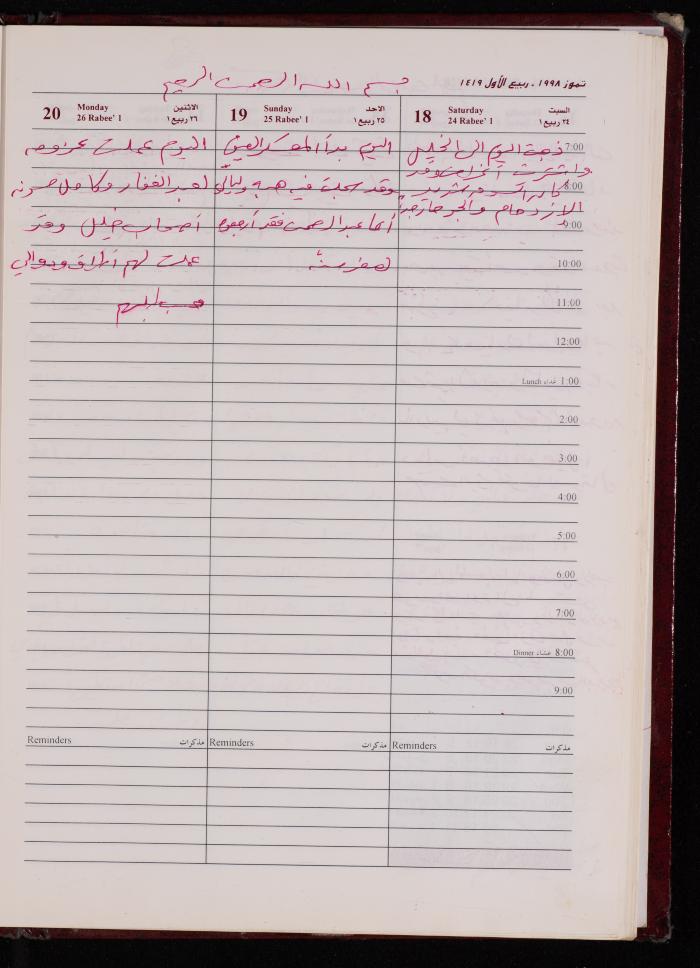 تموز ١٩٩٨ - ربيع الأول ١٤١٩
بسم الله الرحمن الرحيم
السبت
٢٤ ربيع ١
Saturday
24 Rabee' 1
18
الاحد
٢٥ ربيع ١
Sunday
25 Rabee' 1
19
الاثنين
٢٦ ربيع ١
Monday
26 Rabee' 1
20
ذهبت اليوم الى الخليل
واشتريت أغراض وقد
كان الحر شديد
الازدحام والجو حار جداً
اليوم بدأ المعسكر
وقد سجلت فيه هبه وليالي
أما عبد الرحمن فقد
لصغر سنه
اليوم عملت عزومه
لعبد الغفار وكامل
أصحاب خليل وقد
عملت لهم ودوالي
7:00
8:00
9:00
10:00
11:00
12:00
Lunch غداء 1:00
2:00
3:00
4:00
5:00
6:00
7:00
Dinner عشاء 8:00
9:00
Reminders مذكرات
Reminders مذكرات
Reminders مذكرات